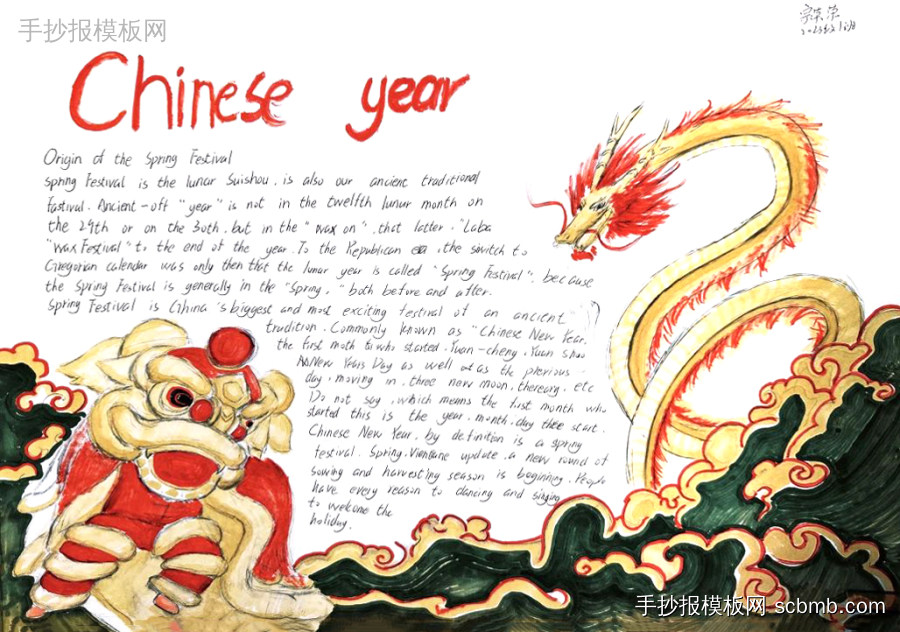 手抄报模板网
Chinese year
Origin of the Spring Festival
Spring Festival is the lunar Suishou, is also our ancient traditional
Fastival. Ancient-oft "year" is not in the twelfth lunur month on
the 29th or on the 30th, but in the "wax on", that latter, "Laba
"wax Festival" to the end of the year. To the Republican , the switch to
Gregorian calendar was only then that the lunar year is called "Spring Festival", because
the Spring Festival is generally in the "Spring," both before and after.
Spring Festival is China's biggest and most exciting festival of an ancient
tradition. Commonly known as "Chinese New Year,
the first moth to who started, Yuan-cheng, Yuan shuo
New Years Day as well as the previous
day, moving in, three new moon, , etc
Do not say, which means the first month who
started this is the year, month, day thee start.
Chinese New Year, by definition is a spring
festival. Spring, Vientiane update, a new round of
sowing and harvesting season is beginning. People
have every reason to dancing and singing
to welcome the
holiday.
手抄报模板网 scbmb.com